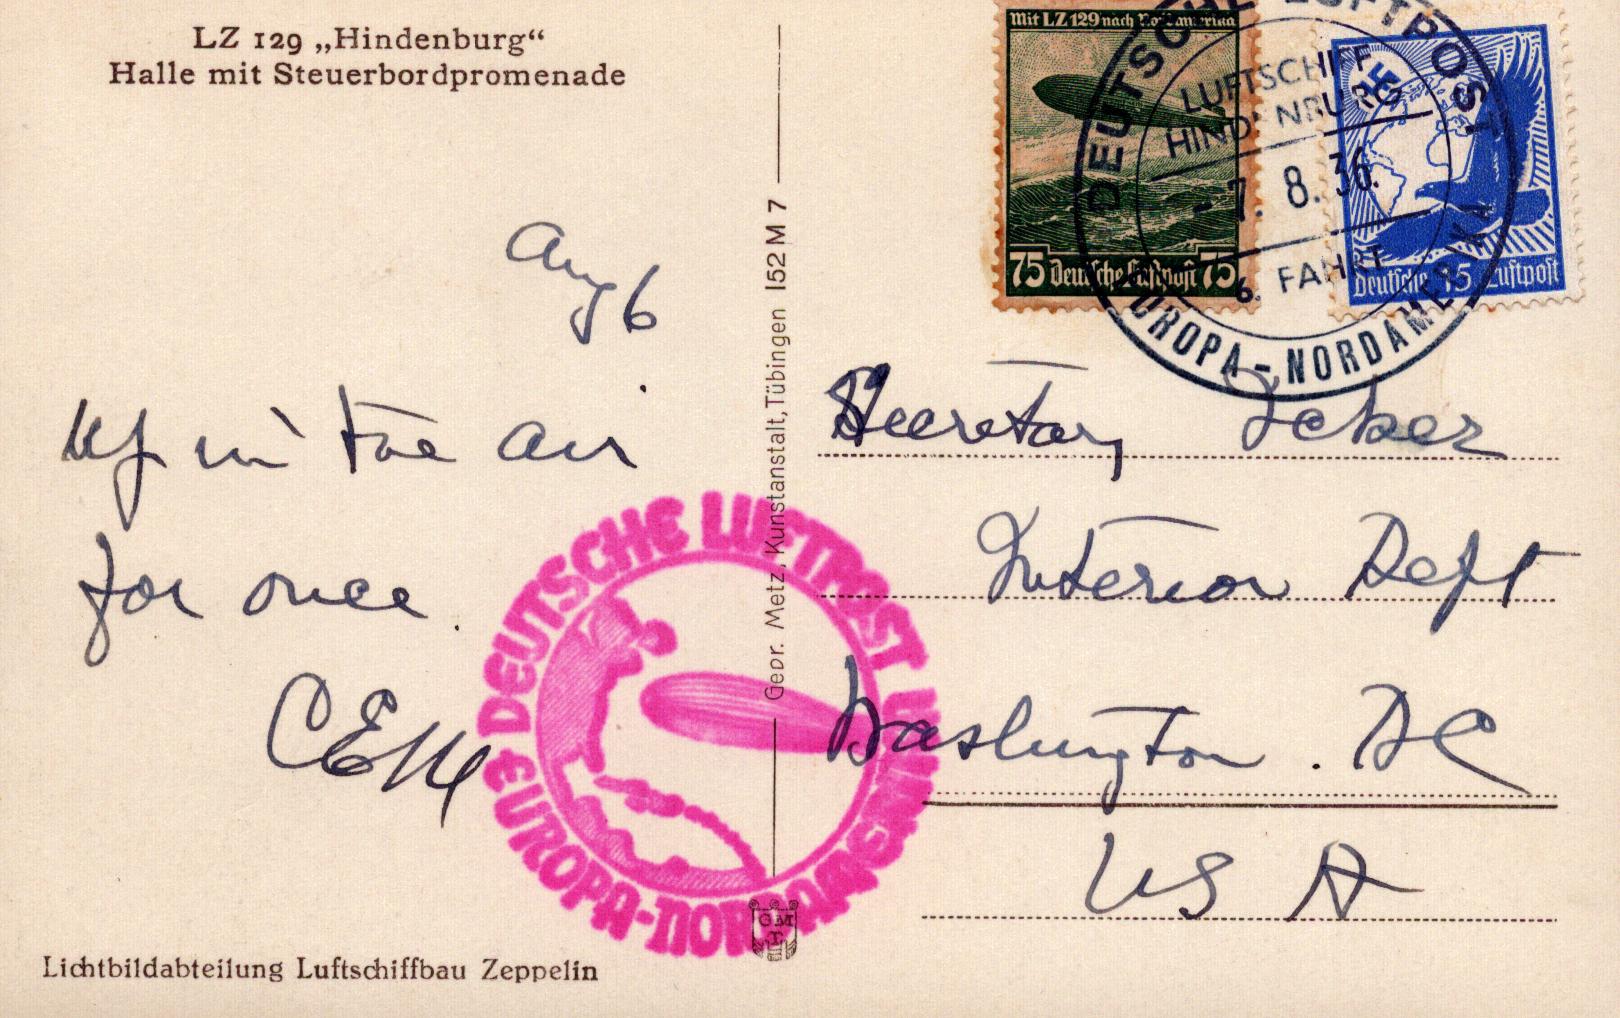 LZ 129 „Hindenburg“
Halle mit Steuerbordpromenade
Mit LZ 129 nach Nordamerika
75 Deutsche Luftpost 75
Deutsche 15 Luftpost
DEUTSCHE LUFTPOST
LUFTSCHIFF
HINDENBURG
- 7. 8. 36.
6. FAHRT
EUROPA - NORDAMERIKA
Aug 6
Up in the air
for once.
CEM
Geor. Metz, Kunstanstalt, Tübingen 152 M 7
Secretary Ickes
Interior Dept
Washington. DC
USA
DEUTSCHE LUFTPOST
EUROPA-NORDAMERIKA
GM
T
Lichtbildabteilung Luftschiffbau Zeppelin